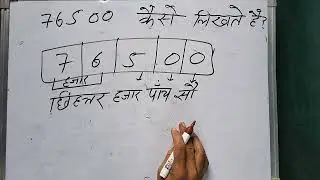 76500 कैसे लिखते है?
7 6 5 0 0
हजार
छिहत्तर हजार पाँच सौ